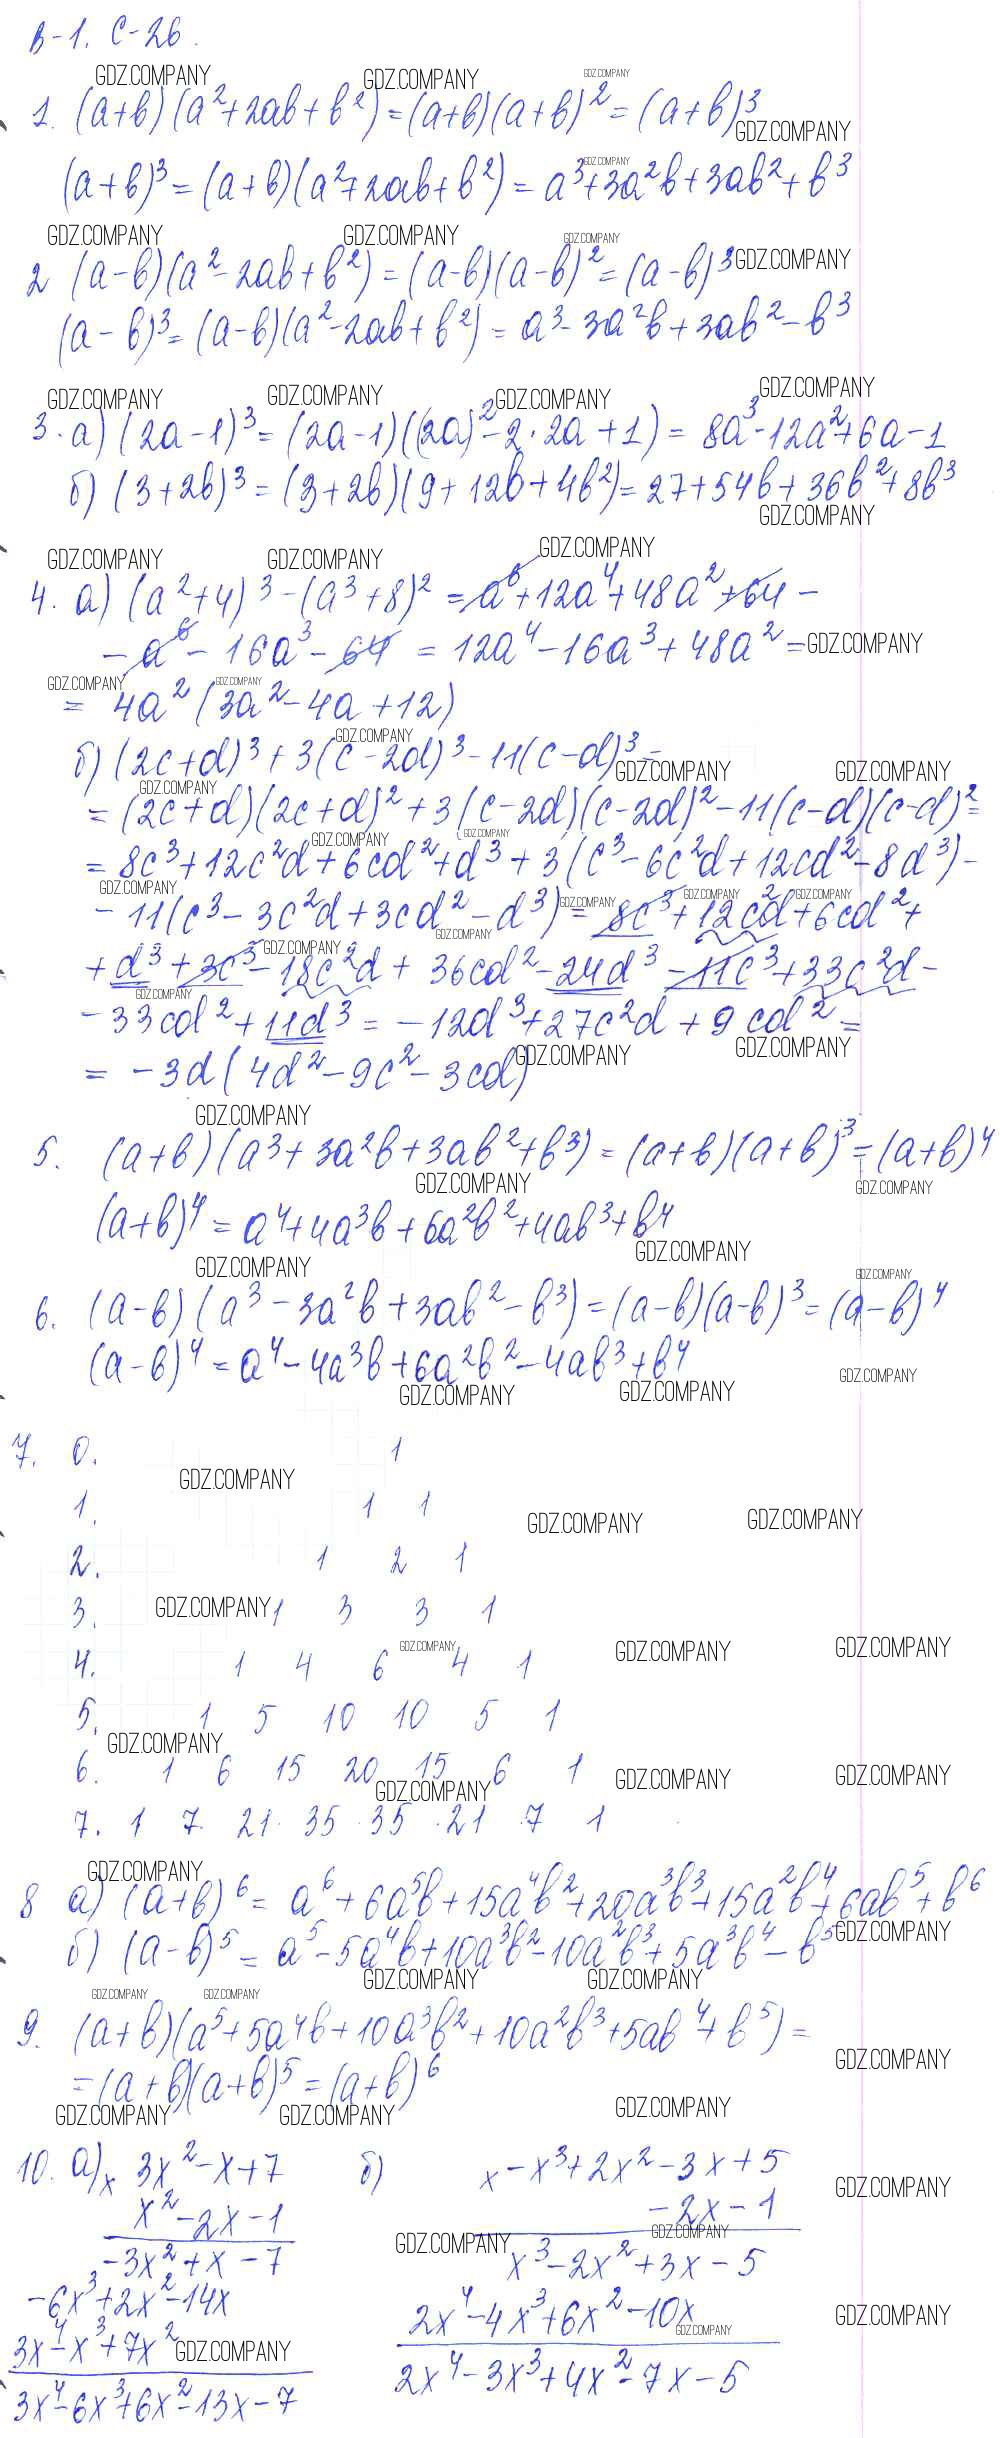 В-1. С-26.
GDZ.COMPANY GDZ.COMPANY GDZ.COMPANY
1. (a+b)(a²+2ab+b²)=(a+b)(a+b)²=(a+b)³
GDZ.COMPANY
GDZ.COMPANY
(a+b)³=(a+b)(a²+2ab+b²)=a³+3a²b+3ab²+b³
GDZ.COMPANY GDZ.COMPANY GDZ.COMPANY
2 (a-b)(a²-2ab+b²)=(a-b)(a-b)²=(a-b)³ GDZ.COMPANY
(a-b)³=(a-b)(a²-2ab+b²)=a³-3a²b+3ab²-b³
GDZ.COMPANY GDZ.COMPANY GDZ.COMPANY GDZ.COMPANY
3. а) (2a-1)³=(2a-1)((2a)²-2·2a+1)=8a³-12a²+6a-1
б) (3+2b)³=(3+2b)(9+12b+4b²)=27+54b+36b²+8b³
GDZ.COMPANY
GDZ.COMPANY GDZ.COMPANY GDZ.COMPANY
4. а) (a²+4)³-(a³+8)²=a⁶+12a⁴+48a²+64-
-a⁶-16a³-64=12a⁴-16a³+48a²= GDZ.COMPANY
GDZ.COMPANY GDZ.COMPANY
=4a²(3a²-4a+12)
GDZ.COMPANY
б) (2c+d)³+3(c-2d)³-11(c-d)³=
GDZ.COMPANY GDZ.COMPANY GDZ.COMPANY
=(2c+d)(2c+d)²+3(c-2d)(c-2d)²-11(c-d)(c-d)²=
GDZ.COMPANY GDZ.COMPANY
=8c³+12c²d+6cd²+d³+3(c³-6c²d+12cd²-8d³)-
GDZ.COMPANY GDZ.COMPANY GDZ.COMPANY GDZ.COMPANY
-11(c³-3c²d+3cd²-d³)=8c³+12c²d+6cd²+
GDZ.COMPANY GDZ.COMPANY
+d³+3c³-18c²d+36cd²-24d³-11c³+33c²d-
GDZ.COMPANY
-33cd²+11d³=-12d³+27c²d+9cd²=
GDZ.COMPANY GDZ.COMPANY
=-3d(4d²-9c²-3cd)
GDZ.COMPANY
5. (a+b)(a³+3a²b+3ab²+b³)=(a+b)(a+b)³=(a+b)⁴
GDZ.COMPANY GDZ.COMPANY
(a+b)⁴=a⁴+4a³b+6a²b²+4ab³+b⁴
GDZ.COMPANY GDZ.COMPANY GDZ.COMPANY
6. (a-b)(a³-3a²b+3ab²-b³)=(a-b)(a-b)³=(a-b)⁴
(a-b)⁴=a⁴-4a³b+6a²b²-4ab³+b⁴
GDZ.COMPANY GDZ.COMPANY GDZ.COMPANY
7. 0. 1
GDZ.COMPANY
1. 1 1
GDZ.COMPANY GDZ.COMPANY
2. 1 2 1
3. GDZ.COMPANY 1 3 3 1
GDZ.COMPANY GDZ.COMPANY GDZ.COMPANY
4. 1 4 6 4 1
5. 1 5 10 10 5 1
GDZ.COMPANY
6. 1 6 15 20 15 6 1
GDZ.COMPANY GDZ.COMPANY GDZ.COMPANY
7. 1 7 21 35 35 21 7 1
GDZ.COMPANY
8 а) (a+b)⁶=a⁶+6a⁵b+15a⁴b²+20a³b³+15a²b⁴+6ab⁵+b⁶
б) (a-b)⁵=a⁵-5a⁴b+10a³b²-10a²b³+5a³b⁴-b⁵ GDZ.COMPANY
GDZ.COMPANY GDZ.COMPANY
GDZ.COMPANY GDZ.COMPANY
9. (a+b)(a⁵+5a⁴b+10a³b²+10a²b³+5ab⁴+b⁵)=
GDZ.COMPANY
=(a+b)(a+b)⁵=(a+b)⁶
GDZ.COMPANY GDZ.COMPANY GDZ.COMPANY
10. а) x 3x²-x+7 б) x -x³+2x²-3x+5
GDZ.COMPANY
x²-2x-1 -2x-1
GDZ.COMPANY GDZ.COMPANY
-3x²+x-7 x³-2x²+3x-5
-6x³+2x²-14x 2x⁴-4x³+6x²-10x
GDZ.COMPANY GDZ.COMPANY
3x⁴-x³+7x² GDZ.COMPANY
3x⁴-6x³+6x²-13x-7 2x⁴-3x³+4x²-7x-5